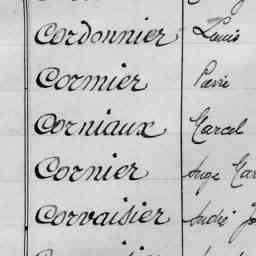 Cordonnier Louis
Cormier Pierre
Corniaux Marcel
Cornier Ange
Corvaisier André